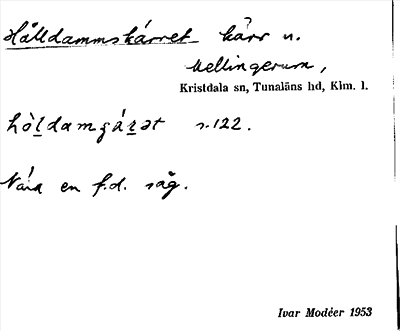 Hålldammskärret kärr n.
Mellingerum,
Kristdala sn, Tunaläns hd, Klm. l.
s. 122.
Nära en f.d. såg.
Ivar Modéer 1953